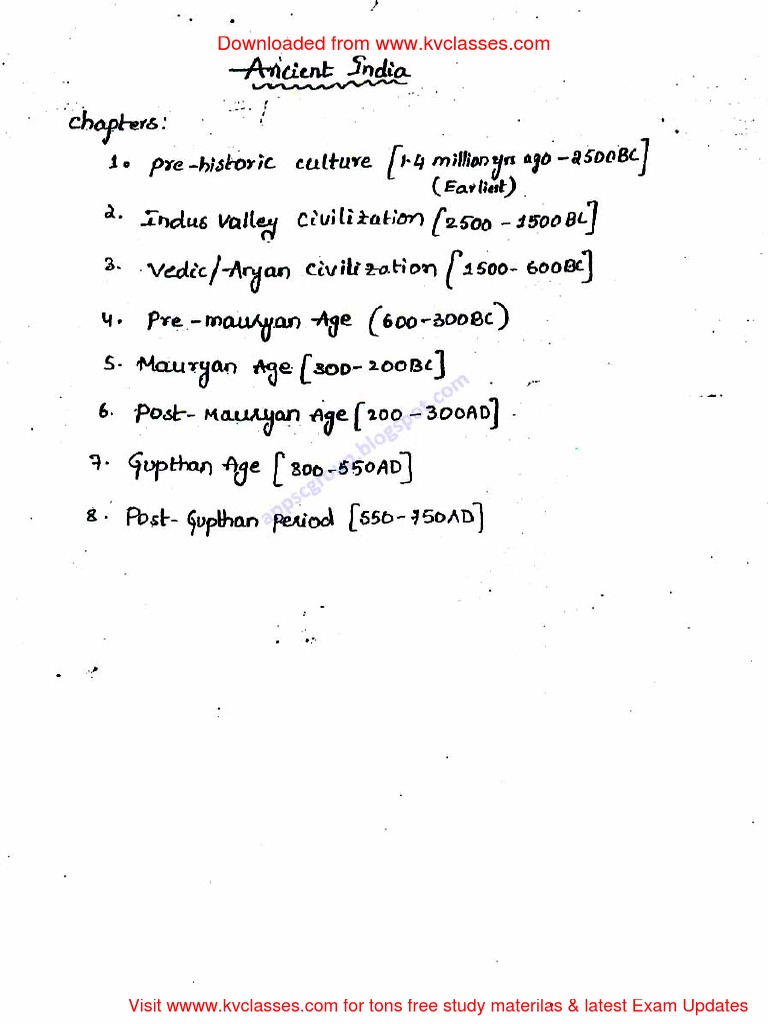 Downloaded from www.kvclasses.com
Ancient India
Chapters:
1. Pre-historic culture [1.4 million yrs ago - 2500BC]
(Earliest)
2. Indus Valley Civilization [2500 - 1500BC]
3. Vedic/Aryan Civilization [1500-600BC]
4. Pre-mauryan Age (600-300BC)
5. Mauryan Age [300-200BC]
6. Post-Mauryan Age [200-300AD]
7. Gupthan Age [300-550AD]
8. Post-Gupthan Period [550-750AD]
appscgroup.blogspot.com
Visit wwww.kvclasses.com for tons free study materilas & latest Exam Updates